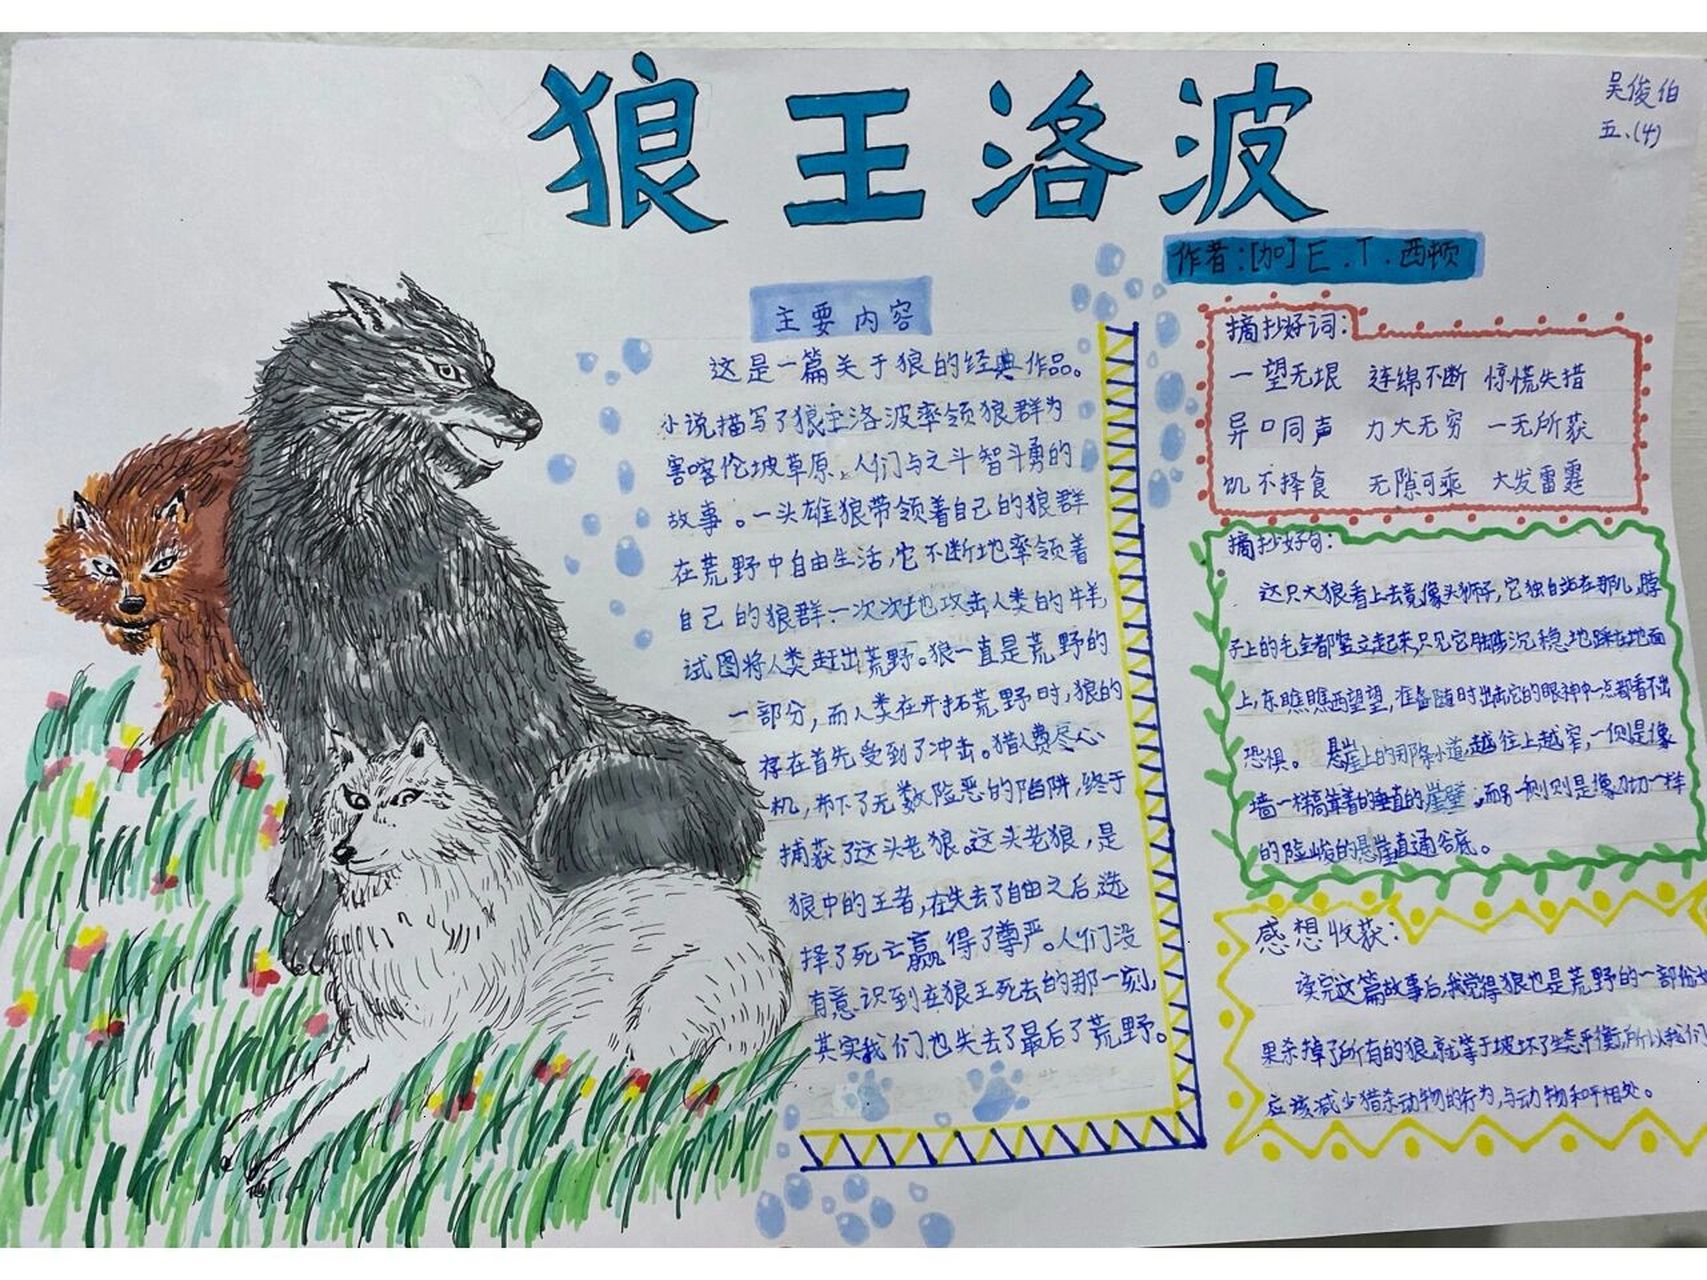 狼王洛波
吴俊伯
五.(4)
作者:[加]E.T.西顿
主要内容
这是一篇关于狼的经典作品。
小说描写了狼王洛波率领狼群为
害喀伦坡草原、人们与之斗智斗勇的
故事。一头雄狼带领着自己的狼群
在荒野中自由生活,它不断地率领着
自己的狼群一次次地攻击人类的牛羊,
试图将人类赶出荒野。狼一直是荒野的
一部分,而人类在开拓荒野时,狼的
存在首先受到了冲击。猎人费尽心
机,布下了无数险恶的陷阱,终于
捕获了这头老狼。这头老狼,是
狼中的王者,在失去了自由之后,选
择了死亡赢得了尊严。人们没
有意识到在狼王死去的那一刻,
其实我们也失去了最后了荒野。
摘抄好词:
一望无垠 连绵不断 惊慌失措
异口同声 力大无穷 一无所获
饥不择食 无隙可乘 大发雷霆
摘抄好句:
这只大狼看上去竟像头狮子,它独自站在那儿,脖
子上的毛全都竖立起来,只见它脚步沉稳地踩在地面
上,东瞧瞧西望望,准备随时出击它的眼神中一点都看不出
恐惧。 悬崖上的那条小道,越往上越窄,一侧是像
墙一样搞靠着的垂直的崖壁,而另一侧则是像刀切一样
的险峻的悬崖直通谷底。
感想收获:
读完这篇故事后,我觉得狼也是荒野的一部份
果杀掉了所有的狼,就等于破坏了生态平衡,所以我们
应该减少猎杀动物的行为,与动物和平相处。